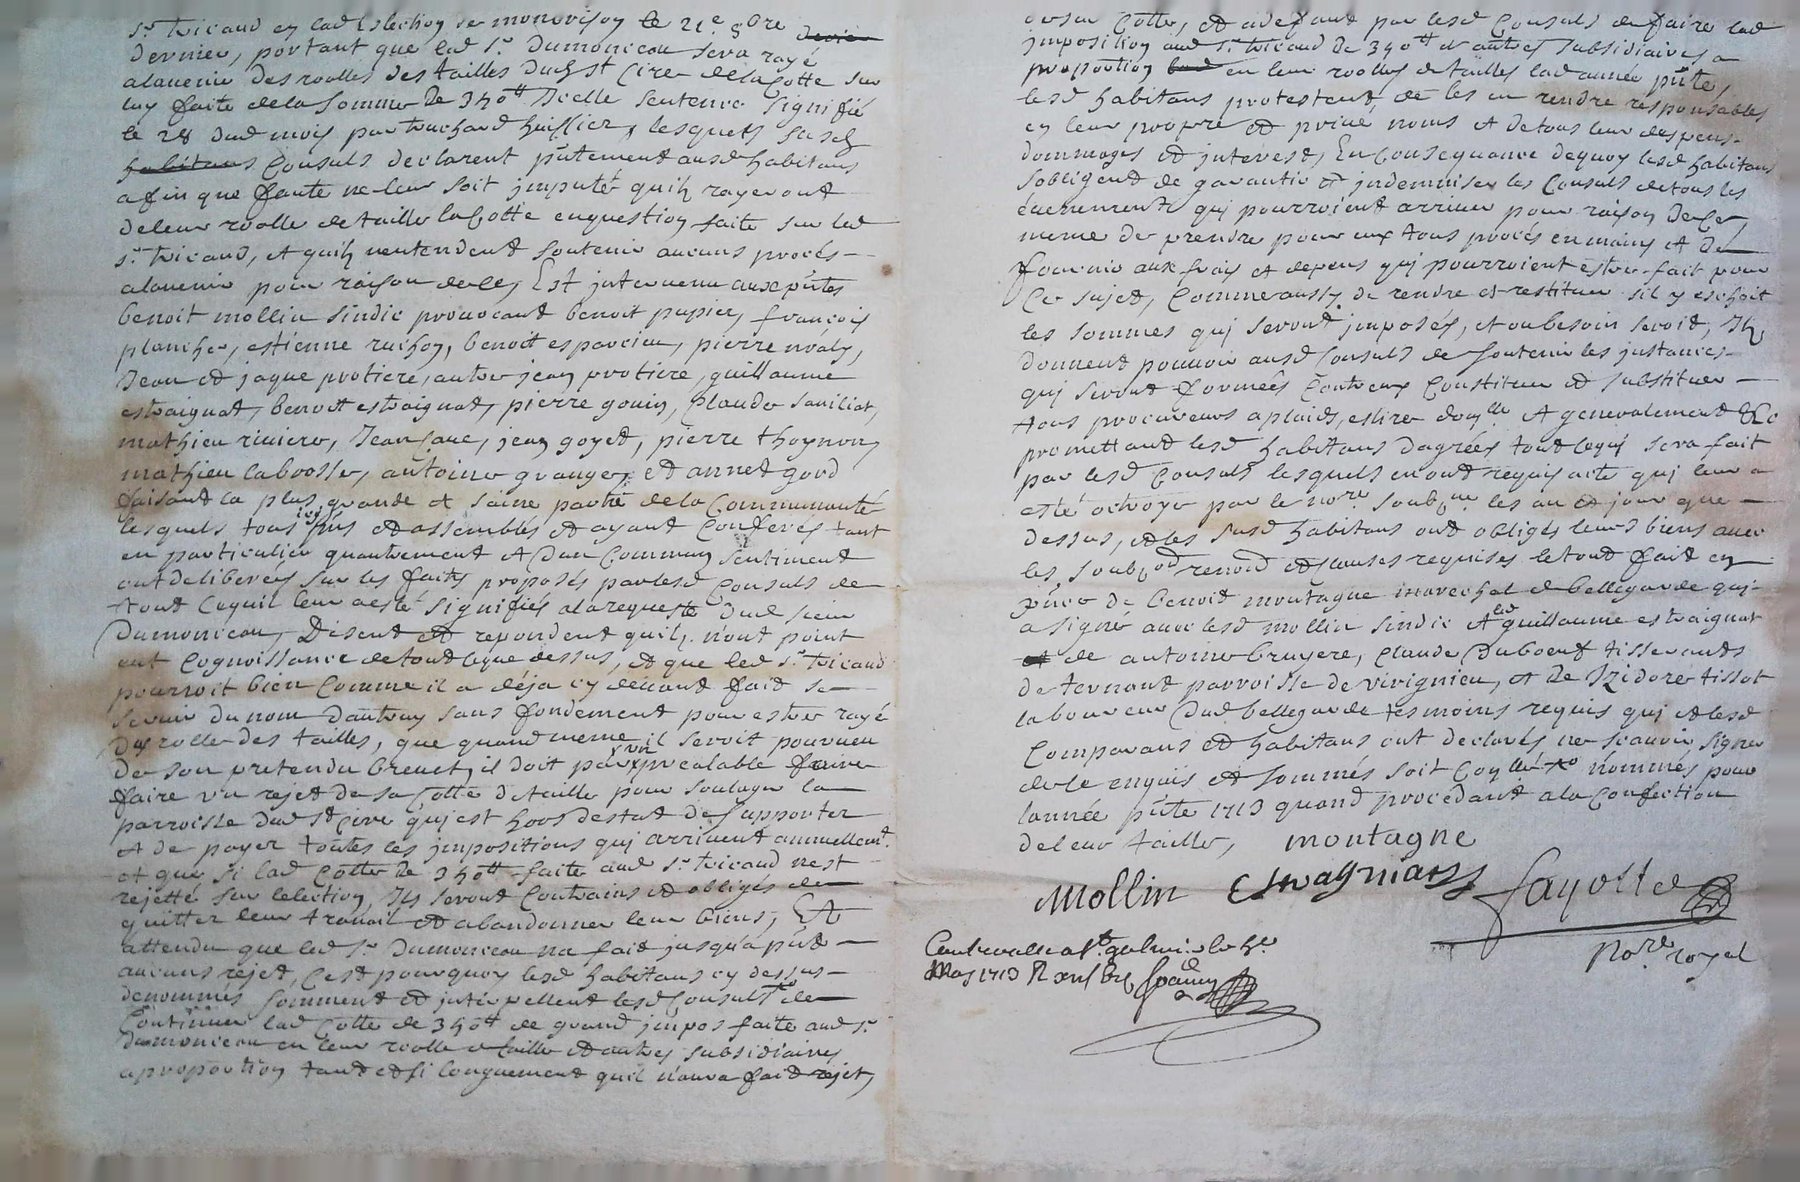 sr. tricaud en lad Eslection de montbrison le 21e 8bre
dernier, portant que led sr. dumonceau sera rayé
alavenir des roolles des tailles dud st Cire de la Cotte sur
luy faite de la somme de 340tt Icelle sentence signifié
le 28 dud mois par huissier, lesquels susd
habitans Consuls declarent pntement ausd habitans
afin que faute ne leur soit imputé quils rayeront
de leur roolle de taille la Cotte en question faite sur led
sr. tricaud, et quils nentendent soutenir aucuns procés
alavenir pour raison de ce, Est intervenu aux pntes
benoit mollin sindic provocant benoit papier, françois
planche, estienne ruchon, benoit esparcieu, pierre
Jean et jaque protiere, autre jean protiere, guillaume
estraignat, benoit estraignat, pierre gouin, Claude
mathieu riviere, jean goyet, pierre thoynon,
mathieu labrosse, antoine granger, et annet gord
faisant la plus grande et saine partie de la Communauté
lesquels tous icy pns et assemblés et ayant Conferés tant
en particulier quautrement et dun Commun sentiment
ont deliberés sur les faits proposés par lesd Consuls de
tout Cequil leur a esté signifiés ala requeste dud sieur
Dumonceau, Disent et repondent quils n'ont point
eut Cognoissance de tout ceque dessus, et que led sr. tricaud
pourroit bien Comme il a déja cy devant fait se
servir du nom dautruy sans fondement pour estre rayé
des rolles des tailles, que quand meme il seroit pourveu
de son pretendu brevet, il doit par un prealable
faire un rejet de sa Cotte de taille pour soulager la
parroisse dud st Cire qui est hors destat de supporter
et de payer toutes les impositions qui arrivent annuellemt.
et que si lad Cotte de 340tt faite aud sr. tricaud nest
rejetté sur lelection, Ils seront Contrains et obligés de
quitter leur travail et abandonner leur biens, Et
attendu que led sr. Dumonceau na fait jusqu'à pnt
aucuns rejet, Cest pourquoy lesd habitans cy dessus
denommés somment et interpellent lesd Consuls de
Continuer lad Cotte de 340tt de grand impos faite aud sr.
dumonceau en leur roolle de taille et autres subsidiaires
a proportion tant et si longuement quil naura fait rejet,
de sa Cotte, et a defaut par lesd Consuls de faire lad
imposition aud sr. tricaud de 340tt et autres subsidiaires a
proportion en leur roolles de tailles lad année pnte,
lesd habitans protestent de les en rendre responsables
en leur propre et privé noms et de tous leur despens
dommages et interest, En Consequance dequoy lesd habitans
s'obligent de garantir et indemniser les Consuls de tous les
évenements qui pourroient arriver pour raison de ce,
meme de prendre pour eux tous procés en mains et de
fournir aux frais et depens qui pourroient estre fait pour
Ce sujet, Comme aussy de rendre et restituer s'il y eschoit
les sommes qui seront imposés, et au besoin seroit, Ils
donnent pouvoir ausd Consuls de soutenir les instances
qui seront formeés Contreux Constituer et substituer
tous procureurs a plaids, eslire domlle et generalement &c
promettant lesd habitans dagreés tout Cequi sera fait
par lesd Consuls lesquels en ont requis acte qui leur a
esté octroyé par le nore. soubsne. les an et jour que
dessus, et les susd habitans ont obligés leurs biens avec
les renond et clauses requises le tout fait en
pnce de benoit montagne marechal de bellegarde qui
a signé avec lesd mollin sindic et led guillaume estraignat
de antoine bruyere, Claude Duboeuf tisserands
de ternand parroisse de virignieu, et de Izidore tissot
laboureur dud bellegarde tesmoins requis qui et lesd
Comparans et habitans ont declarés ne scavoir signer
de ce enquis et sommés soit nommés pour
lannée pnte 1713 quand procedant ala Confection
de leur taille,
montagne
Mollin Estraignat fayolle
Nore. royal
Controollé a st. galmier le
May 1713 R